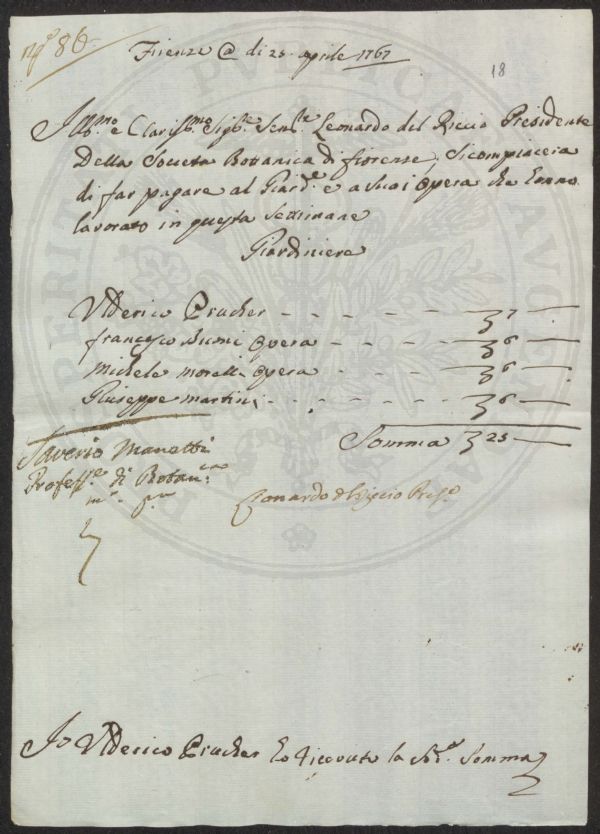 N.º 86
Firenze @ di 25 aprile 1767
18
Ill.mo e Clariss.mo Sig.re Sen.re Leonardo del Riccio Presidente
Della Societa Botanica di fiorense, Si compiacera
di far pagare al Giard.e e a Suoi Opera che Eanno
lavorato in questa Settimane
Giardiniera
Uderico Prucher - - - - - - 7 —
francesco Opera - - - - - 6 —
Michele Morelli Opera - - - - 6 —
Giuseppe martini - - - - - 6 —
Somma 25 —
Saverio Manetti
Profess.e di Botan.ca
m.o p.a
Leonardo del Riccio Pres.e
Io Uderico Prucher ho ricevuto la Sud.a Somma